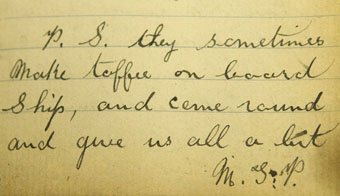 P. S. they sometimes
make toffee on board
ship, and come round
and give us all a bit
M. S. P.